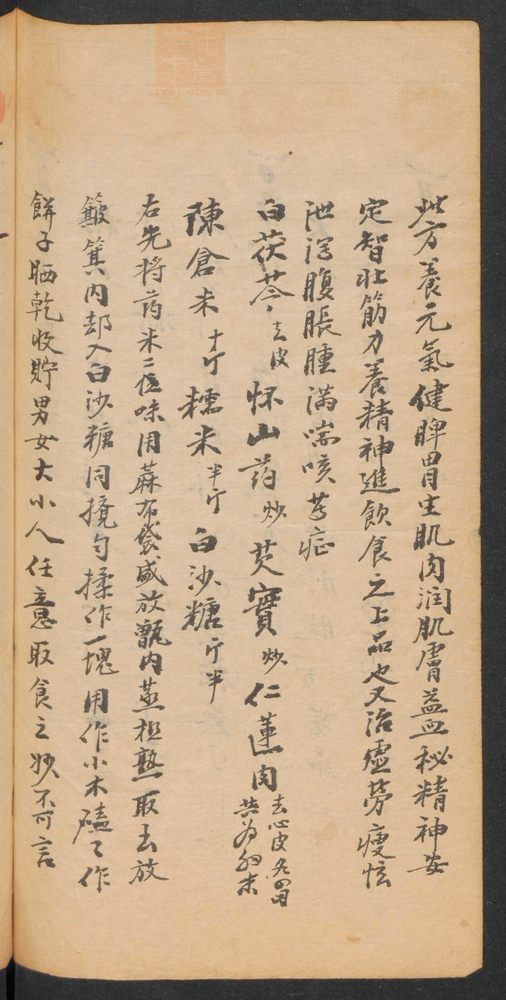 此方养元氣健脾胃生肌肉润肌膚益血秘精神安
定智壮筋力养精神進飲食之上品也又治虚劳瘦怯
泄泻腹脹腫满喘咳等症
白茯苓去皮 怀山药炒 芡實炒 仁蓮肉去心皮各四両 共为細末
陳倉米十斤 糯米半斤 白沙糖斤半
右先将药米二位味用蔴布袋盛放甑内蒸極熟取去放
簸箕内却入白沙糖同撹匀揉作一塊用作小木磕々作
餅子晒乾收貯男女大小人任意取食之妙不可言